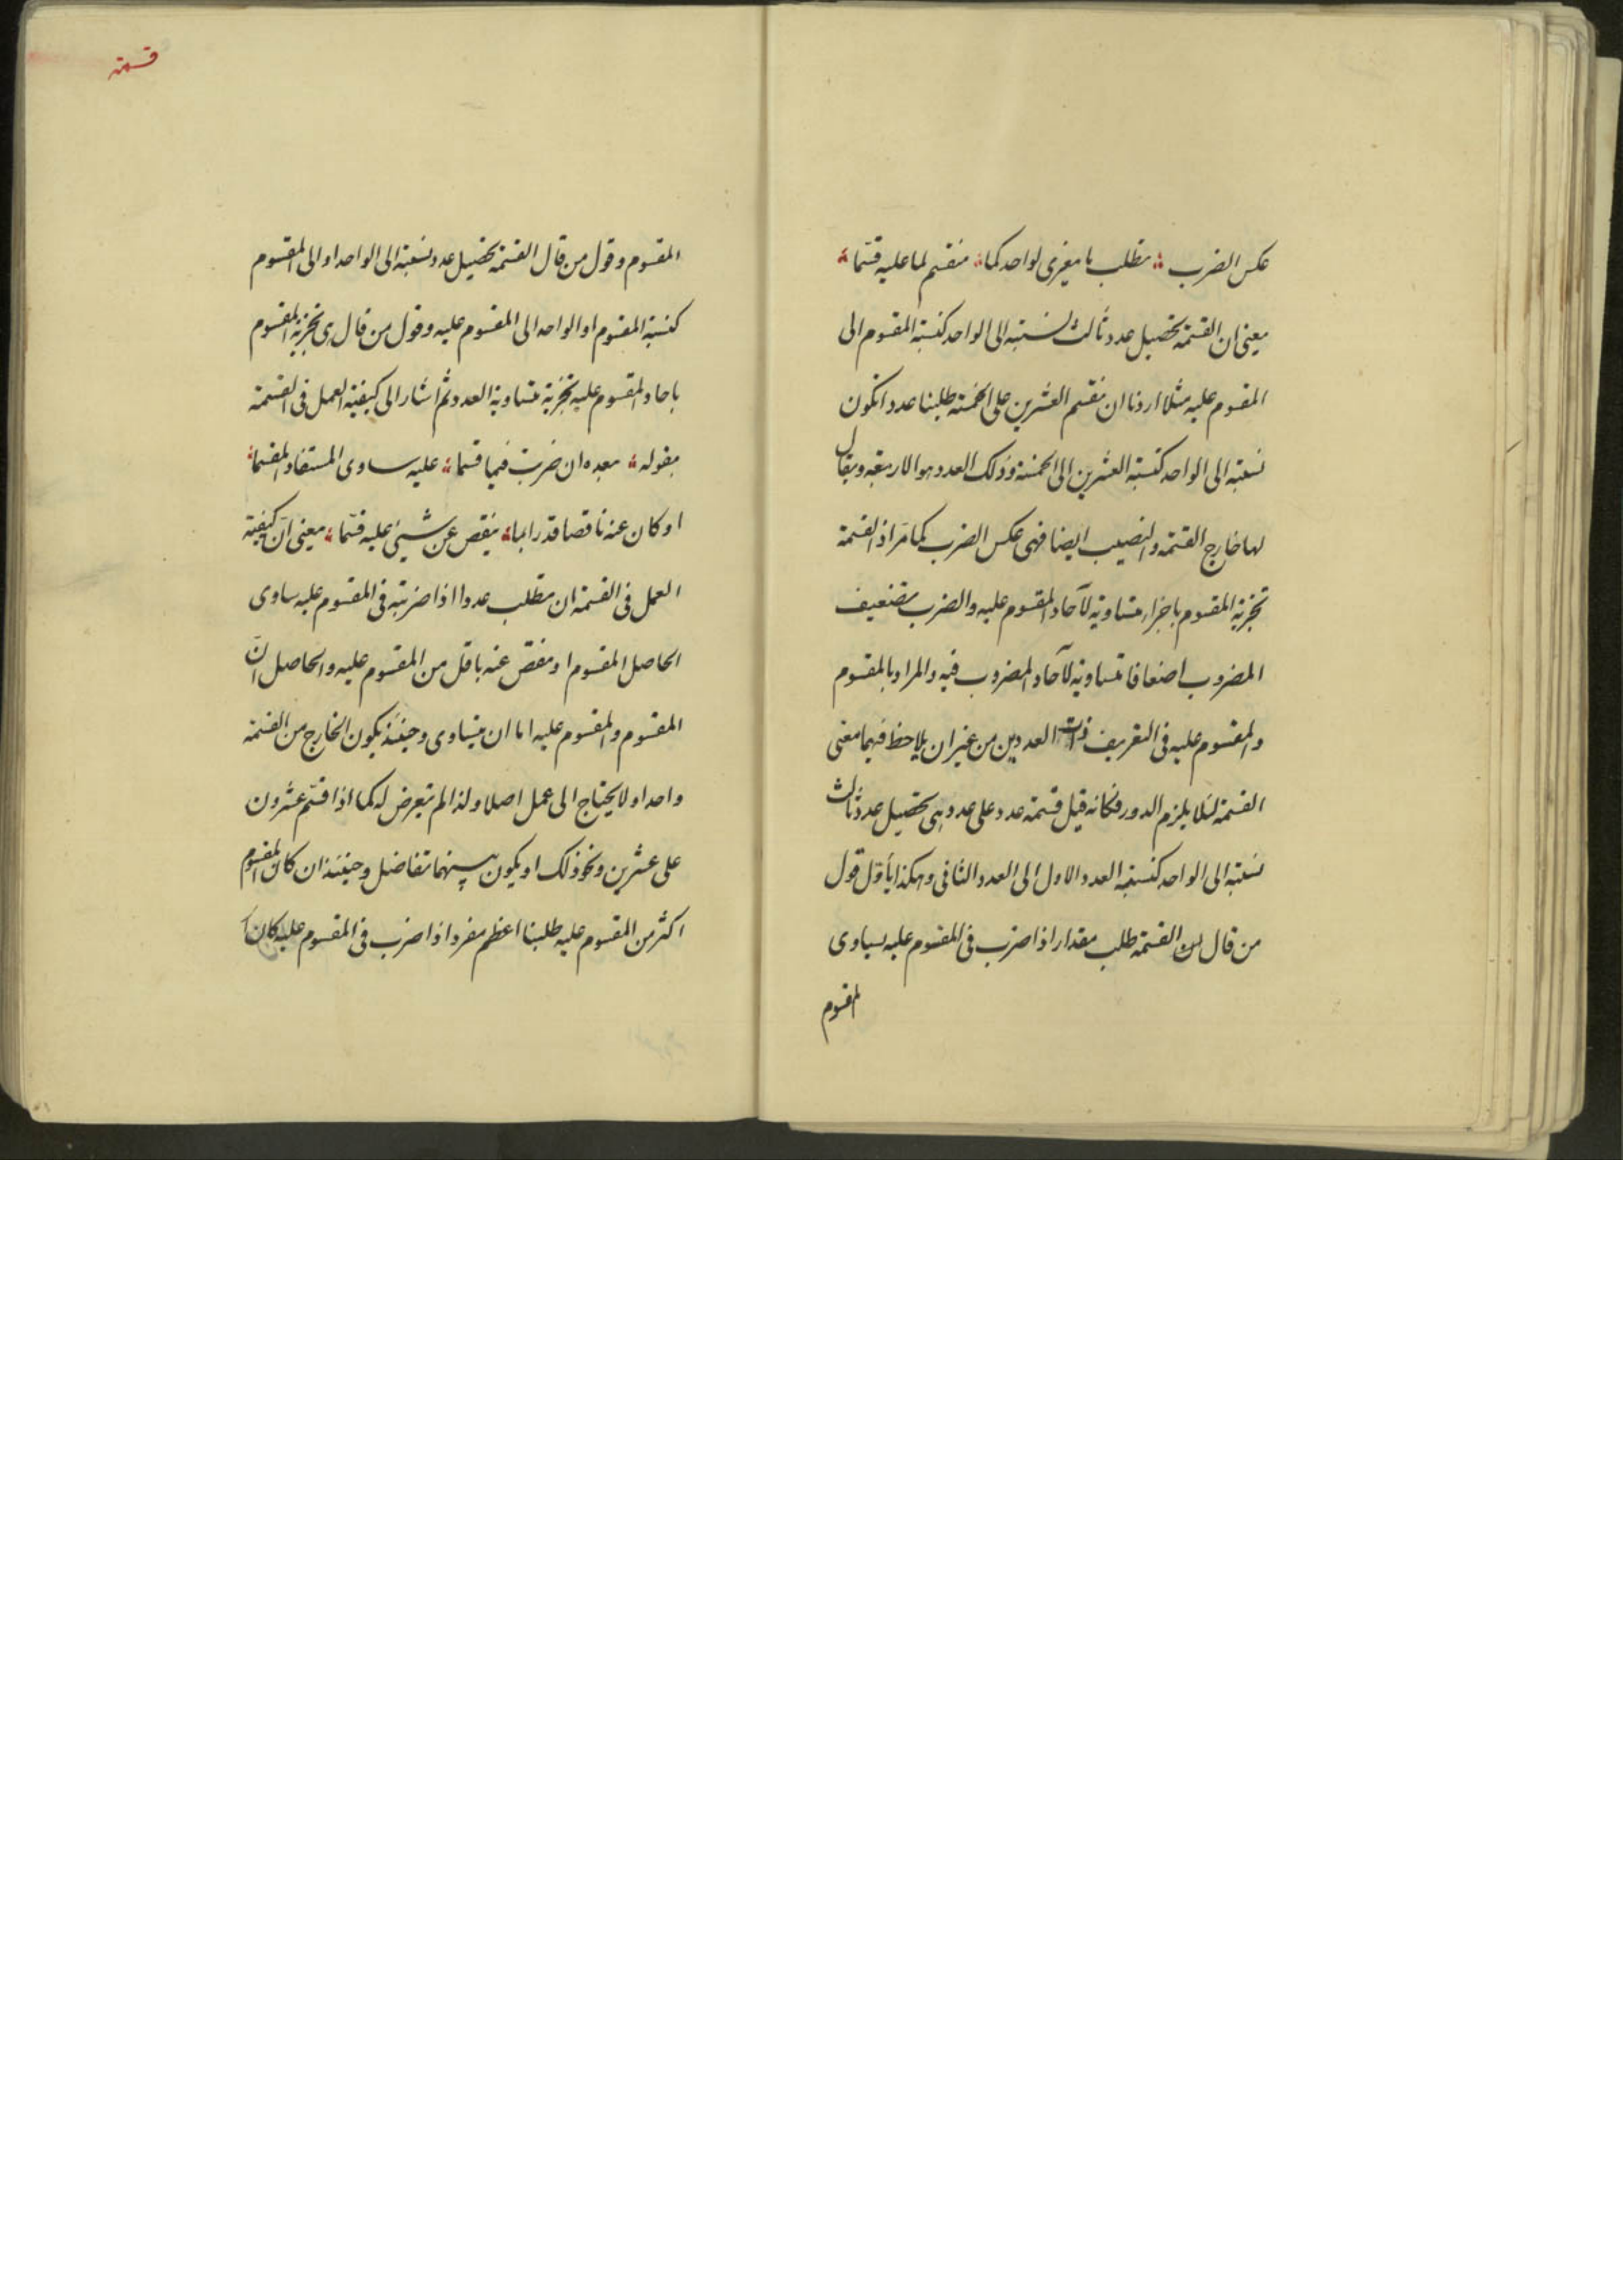 عكس الضرب ؞ تطلب ما يعزى لواحد كما ؞ منقسم لما عليه قسّما ؞
يعنى ان القسمة تحصيل عدد ثالث نسبته الى الواحد كنسبة المقسوم الى
المقسوم عليه مثلا اردنا ان نقسم العشرين على الخمسة طلبنا عددا تكون
نسبته الى الواحد كنسبة العشرين الى الخمسة وذلك العدد هو الاربعة ويقال
لها خارج القسمة والنصيب ايضا فهى عكس الضرب كما مرّ اذ القسمة
تجزية المقسوم باجزاء متساوية لآحاد المقسوم عليه والضرب تضعيف
المضروب اضعافا متساوية لآحاد المضروب فيه والمراد بالمقسوم
والمقسوم عليه فى التعريف ذات العددين من غير ان يلاحظ فيهما معنى
القسمة لئلا يلزم الدور فكانه قيل قسمة عدد على عدد هى تحصيل عدد ثالث
نسبته الى الواحد كنسبة العدد الاول الى العدد الثانى وهكذا يأوّل قول
من قال ان القسمة طلب مقدار اذا ضرب فى المقسوم عليه يساوى
المقسوم
قسمة
المقسوم وقول من قال القسمة تحصيل عدد نسبته الى الواحد او الى المقسوم
كنسبة المقسوم او الواحد الى المقسوم عليه وقول من قال هى تجزية المقسوم
باحاد المقسوم عليه تجزية متساوية العدد ثم اشار الى كيفية العمل فى القسمة
بقوله ؞ بعده ان ضربت فيما قسما ؞ عليه ساوى المستفاد المقسما ؞
او كان عنه ناقصا قدرا بما ؞ ينقص عن شيئ عليه قسّما ؞ يعنى انّ كيفية
العمل فى القسمة ان تطلب عددا اذا ضربته فى المقسوم عليه ساوى
الحاصل المقسوم او نقص عنه باقل من المقسوم عليه والحاصل انّ
المقسوم والمقسوم عليه اما ان يتساوى وحينئذ يكون الخارج من القسمة
واحدا ولا يحتاج الى عمل اصلا ولذا لم يتعرض له كما اذا قسّم عشرون
على عشرين ونحو ذلك او يكون بينهما تفاضل وحينئذ ان كان المقسوم
اكثر من المقسوم عليه طلبنا اعظم مفرد اذا ضرب فى المقسوم عليه كان